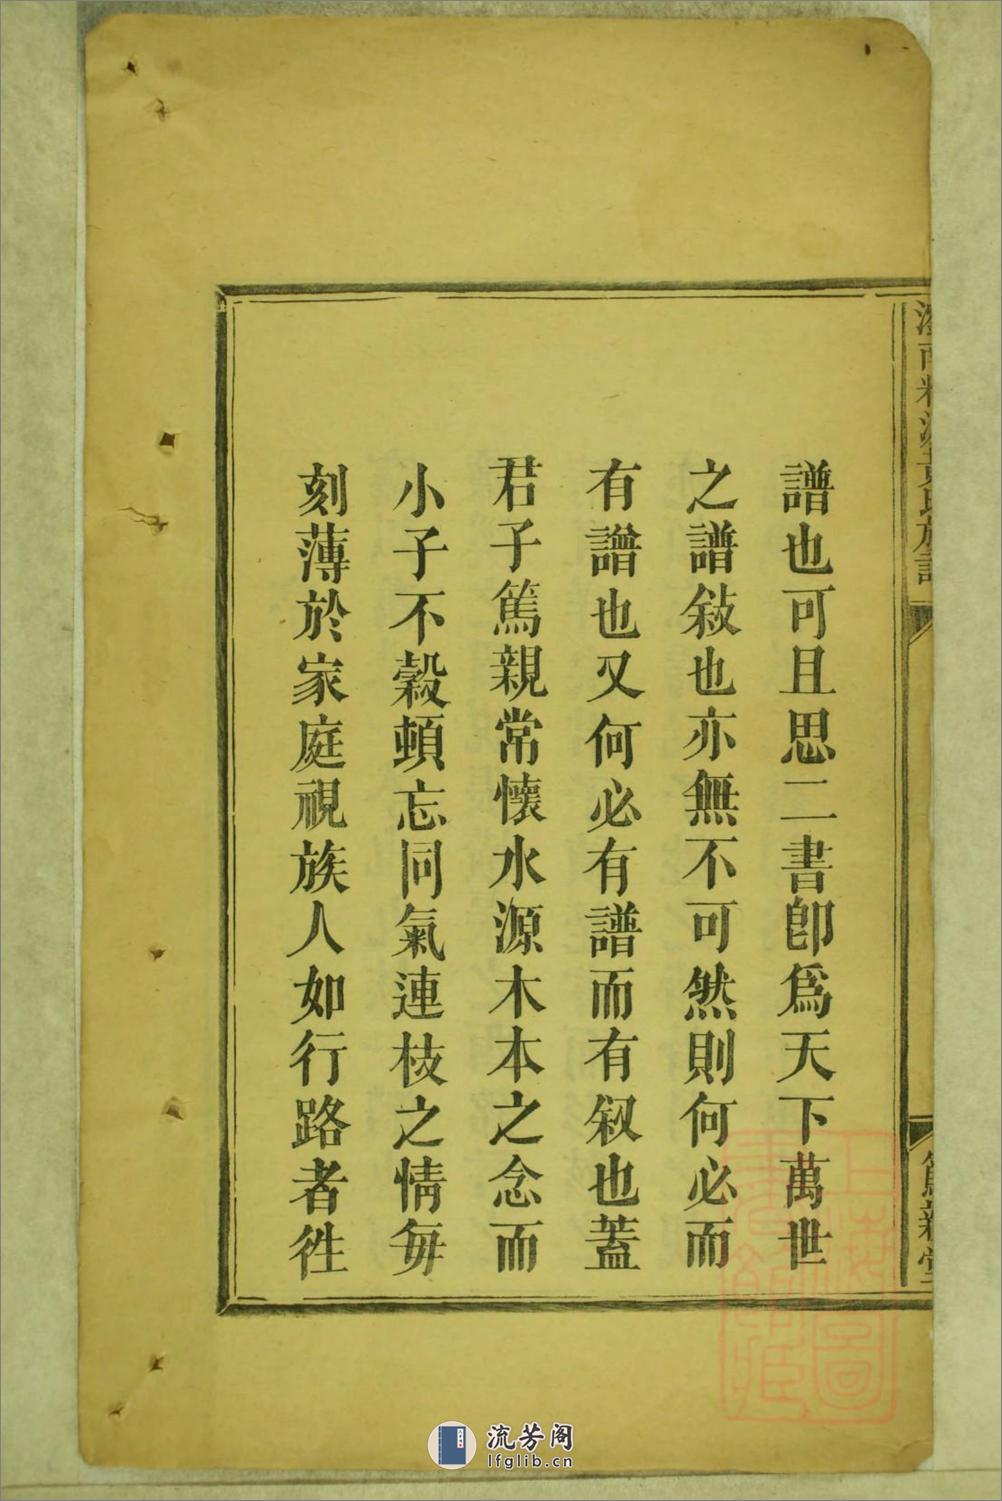 譜也可且思二書卽爲天下萬世
之譜敍也亦無不可然則何必而
有譜也又何必有譜而有叙也蓋
君子篤親常懷水源木本之念而
小子不穀頓忘同氣連枝之情每
刻薄於家庭視族人如行路者徃
氏族譜
篤親堂
上海圖書館藏
流芳阁
lfglib.cn